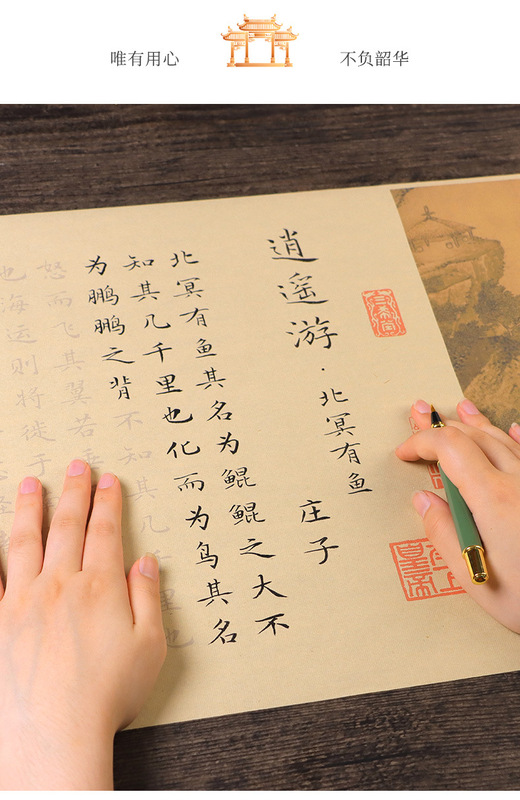 唯有用心
不负韶华
逍遥游·北冥有鱼
庄子
北冥有鱼其名为鲲鲲之大不
知其几千里也化而为鸟其名
为鹏鹏之背不知其几千里也
怒而飞其翼若垂
也海运则将徙于